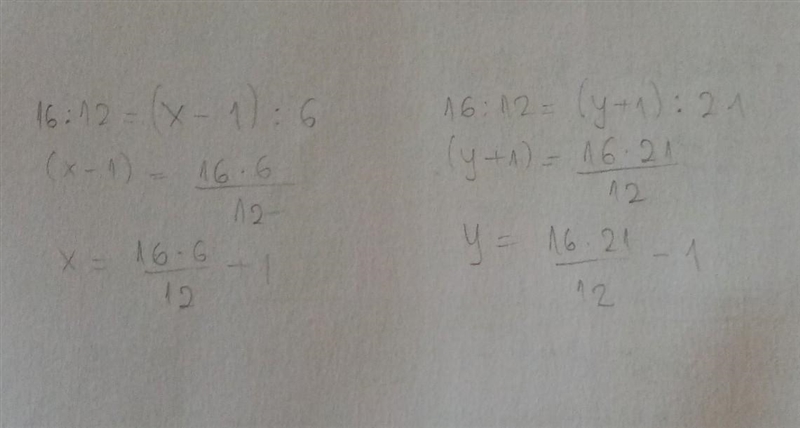 16:12=(x-1):6
(x-1) = 16·6/12
x = 16·6/12 + 1
16:12=(y+1):21
(y+1)= 16·21/12
y = 16·21/12 - 1